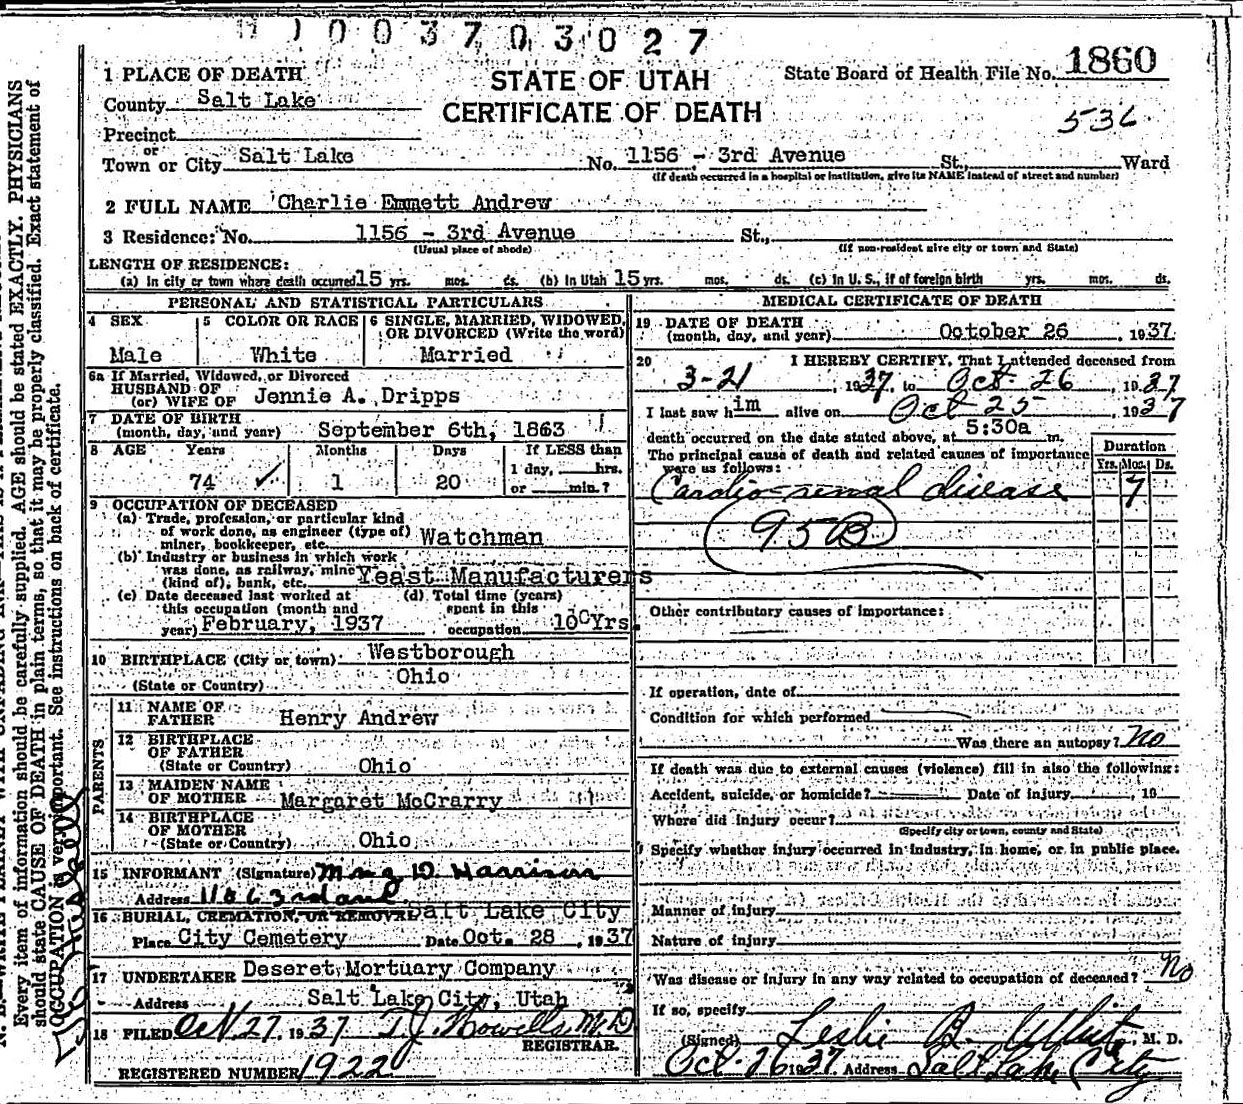 1003703027
1 PLACE OF DEATH
STATE OF UTAH
CERTIFICATE OF DEATH
State Board of Health File No. 1860
536
County Salt Lake
Precinct
or
Town or City Salt Lake No. 1156 - 3rd Avenue St., Ward
(If death occurred in a hospital or institution, give its NAME instead of street and number)
2 FULL NAME Charlie Emmett Andrew
3 Residence: No. 1156 - 3rd Avenue St.,
(Usual place of abode) (If non-resident give city or town and State)
LENGTH OF RESIDENCE:
(a) In city or town where death occurred 15 yrs. mos. ds. (b) In Utah 15 yrs. mos. ds. (c) In U. S., if of foreign birth yrs. mos. ds.
PERSONAL AND STATISTICAL PARTICULARS
4 SEX
Male
5 COLOR OR RACE
White
6 SINGLE, MARRIED, WIDOWED,
OR DIVORCED (Write the word)
Married
6a If Married, Widowed, or Divorced
HUSBAND OF
(or) WIFE OF Jennie A. Dripps
7 DATE OF BIRTH
(month, day, and year) September 6th, 1863
8 AGE Years Months Days If LESS than
1 day, hrs.
74 ✓ 1 20 or min.?
9 OCCUPATION OF DECEASED
(a) Trade, profession, or particular kind
of work done, as engineer (type of)
miner, bookkeeper, etc. Watchman
(b) Industry or business in which work
was done, as railway, mine
(kind of), bank, etc. Yeast Manufacturers
(c) Date deceased last worked at
this occupation (month and
year) February, 1937
(d) Total time (years)
spent in this
occupation 10 Yrs.
10 BIRTHPLACE (City or town) Westborough
(State or Country) Ohio
PARENTS
11 NAME OF
FATHER Henry Andrew
12 BIRTHPLACE
OF FATHER
(State or Country) Ohio
13 MAIDEN NAME
OF MOTHER Margaret McCrarry
14 BIRTHPLACE
OF MOTHER
(State or Country) Ohio
15 INFORMANT (Signature) Mrs D. Harrison
Address 1106 3rd ave
16 BURIAL, CREMATION, OR REMOVAL Salt Lake City
Place City Cemetery Date Oct. 28, 1937
17 UNDERTAKER Deseret Mortuary Company
Address Salt Lake City, Utah
18 FILED Oct. 27, 1937 T J Howells M D
REGISTRAR.
REGISTERED NUMBER 1922
MEDICAL CERTIFICATE OF DEATH
19 DATE OF DEATH
(month, day, and year) October 26, 1937.
20 I HEREBY CERTIFY, That I attended deceased from
3-21, 1937, to Oct-26, 1937
I last saw him alive on Oct 25, 1937
death occurred on the date stated above, at 5:30a m.
The principal cause of death and related causes of importance
were as follows:
Duration
Yrs. Mos. Ds.
Cardio-renal disease 7
95B
Other contributory causes of importance:
If operation, date of
Condition for which performed
Was there an autopsy? No
If death was due to external causes (violence) fill in also the following:
Accident, suicide, or homicide? Date of injury, 19
Where did injury occur?
(Specify city or town, county and State)
Specify whether injury occurred in industry, in home, or in public place.
Manner of injury
Nature of injury
Was disease or injury in any way related to occupation of deceased? No
If so, specify
(Signed) Leslie B. White, M. D.
Oct-26 1937. Address Salt Lake City
Every item of information should be carefully supplied. AGE should be stated EXACTLY. PHYSICIANS
should state CAUSE OF DEATH in plain terms, so that it may be properly classified. Exact statement of
OCCUPATION is very important. See instructions on back of certificate.